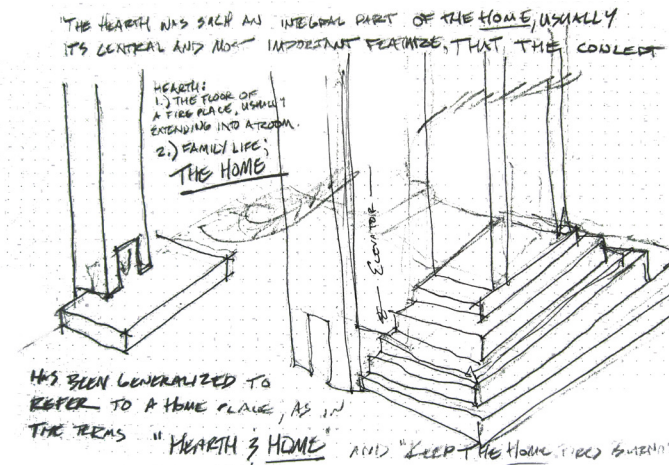 "THE HEARTH WAS SUCH AN INTEGRAL PART OF THE HOME, USUALLY
ITS CENTRAL AND MOST IMPORTANT FEATURE, THAT THE CONCEPT
HEARTH:
1.) THE FLOOR OF
A FIRE PLACE, USUALLY
EXTENDING INTO A ROOM.
2.) FAMILY LIFE;
THE HOME
HAS BEEN GENERALIZED TO
REFER TO A HOME PLACE, AS IN
THE TERMS "HEARTH & HOME" AND "KEEP THE HOME FIRES BURNIN